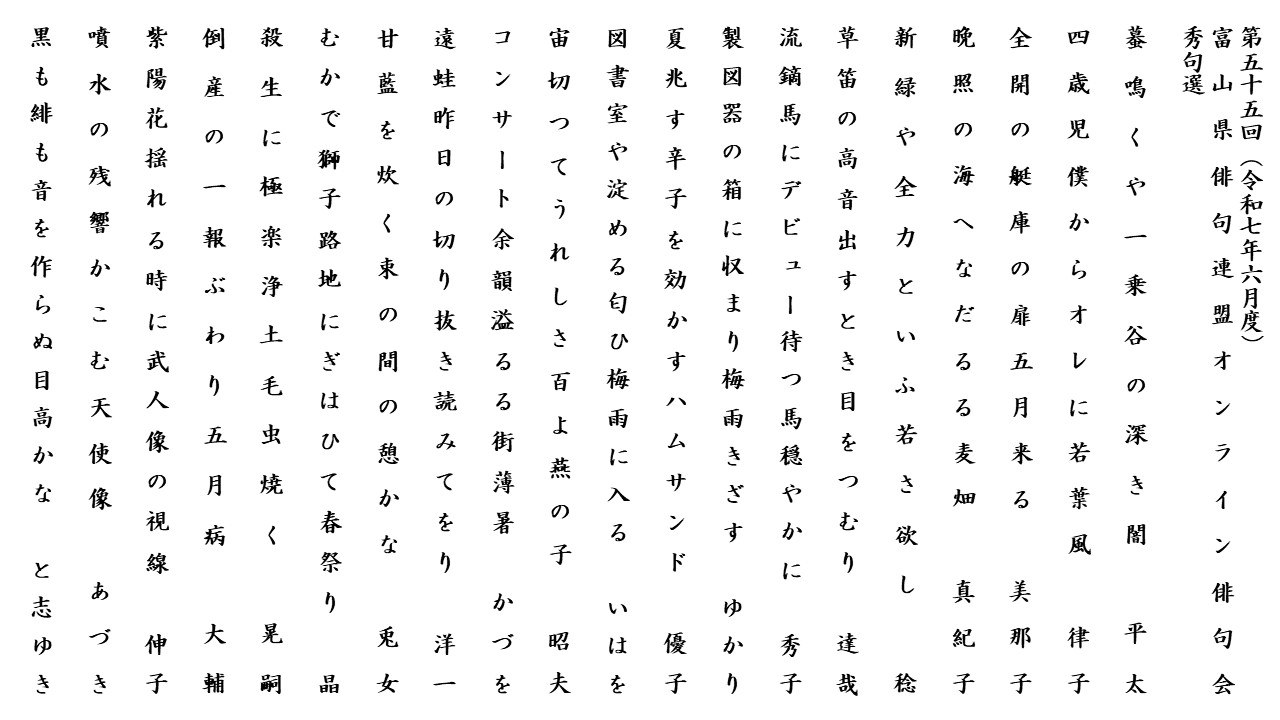 第五十五回（令和七年六月度）
富山県俳句連盟オンライン俳句会
秀句選
蟇鳴くや一乗谷の深き闇 平太
四歳児僕からオレに若葉風 律子
全開の艇庫の扉五月来る 美那子
晩照の海へなだるる麦畑 真紀子
新緑や全力といふ若さ欲し 稔
草笛の高音出すとき目をつむり 達哉
流鏑馬にデビュー待つ馬穏やかに 秀子
製図器の箱に収まり梅雨きざす ゆかり
夏兆す辛子を効かすハムサンド 優子
図書室や淀める匂ひ梅雨に入る いはを
宙切つてうれしさ百よ燕の子 昭夫
コンサート余韻溢るる街薄暑 かづを
遠蛙昨日の切り抜き読みてをり 洋一
甘藍を炊く束の間の憩かな 兎女
むかで獅子路地にぎはひて春祭り 晶
殺生に極楽浄土毛虫焼く 晃嗣
倒産の一報ぶわり五月病 大輔
紫陽花揺れる時に武人像の視線 伸子
噴水の残響かこむ天使像 あづき
黒も緋も音を作らぬ目高かな と志ゆき